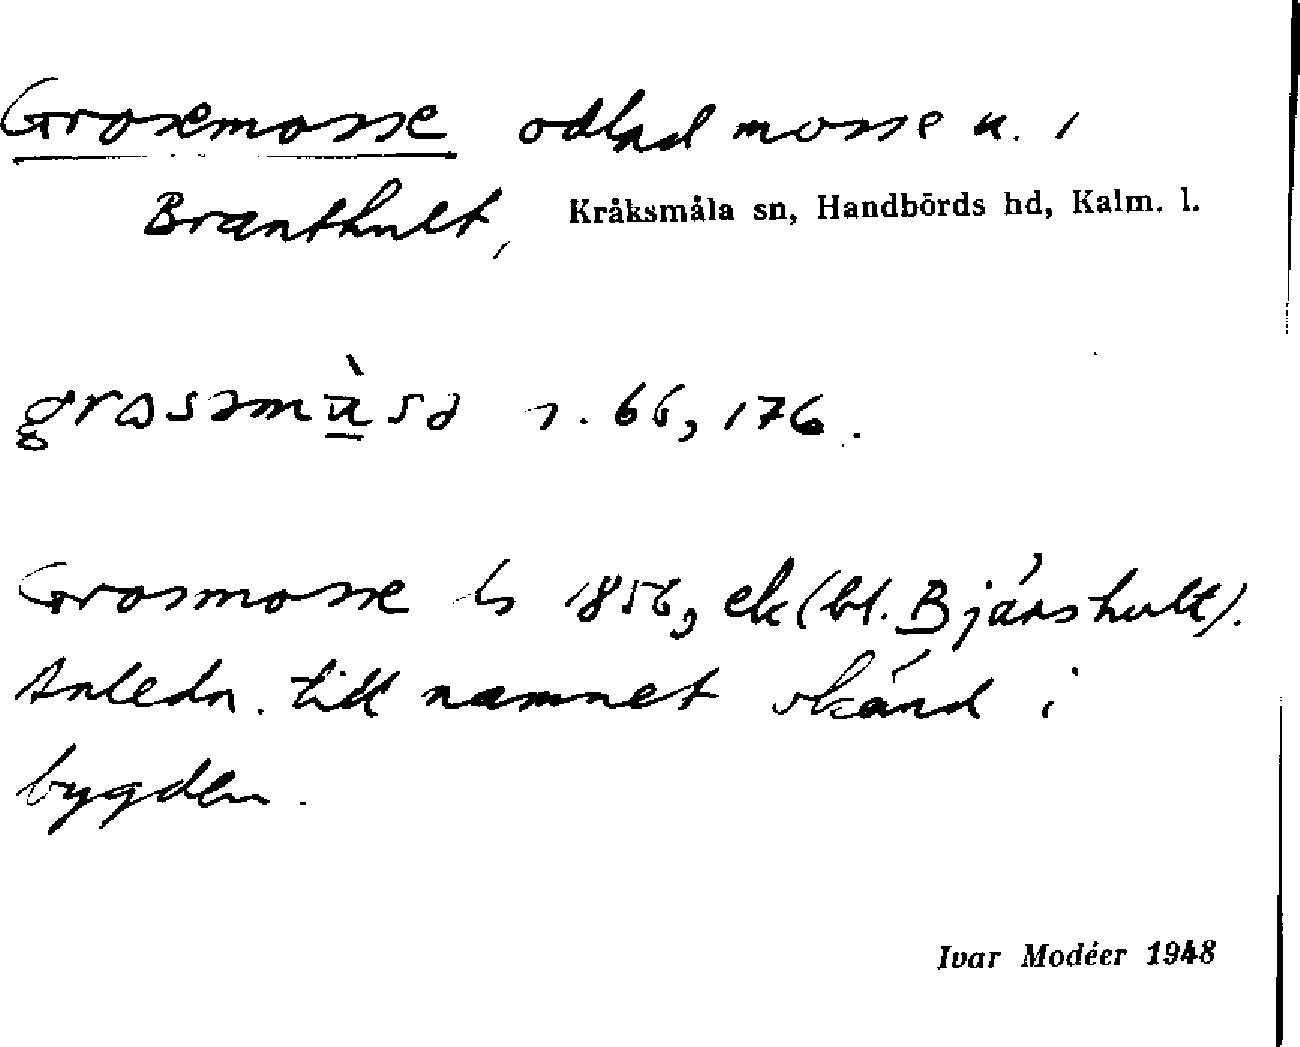 Grosemosse odlad mosse n. i
Branthult, Kråksmåla sn, Handbörds hd, Kalm. l.
grosəmùsə n. 66, 176.
Grosmosse ls 1856, ek (bl. Bjärshult).
Anledn. till namnet okänd i
bygden.
Ivar Modéer 1948